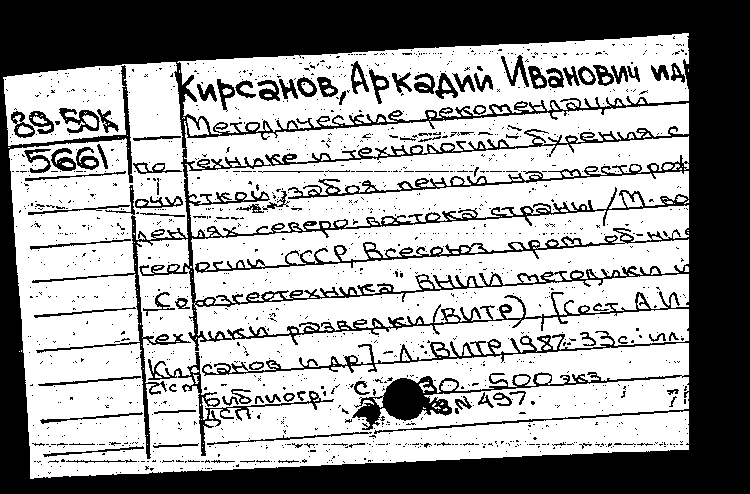 Кирсанов, Аркадий Иванович и др
89-50к
5661
Методические рекомендации
по технике и технологии бурения с
очисткой забоя пеной на месторож
дениях северо-востока страны / М-во
геологии СССР, Всесоюз. пром. об-ние
"Союзгеотехника", ВНИИ методики и
техники разведки (ВИТР) ; [Сост. А.И.
Кирсанов и др]. - Л. : ВИТР, 1987. - 33 с. : ил. ;
21 см
Библиогр.: с. 30. - 500 экз.
ДСП. КВ.N 497.